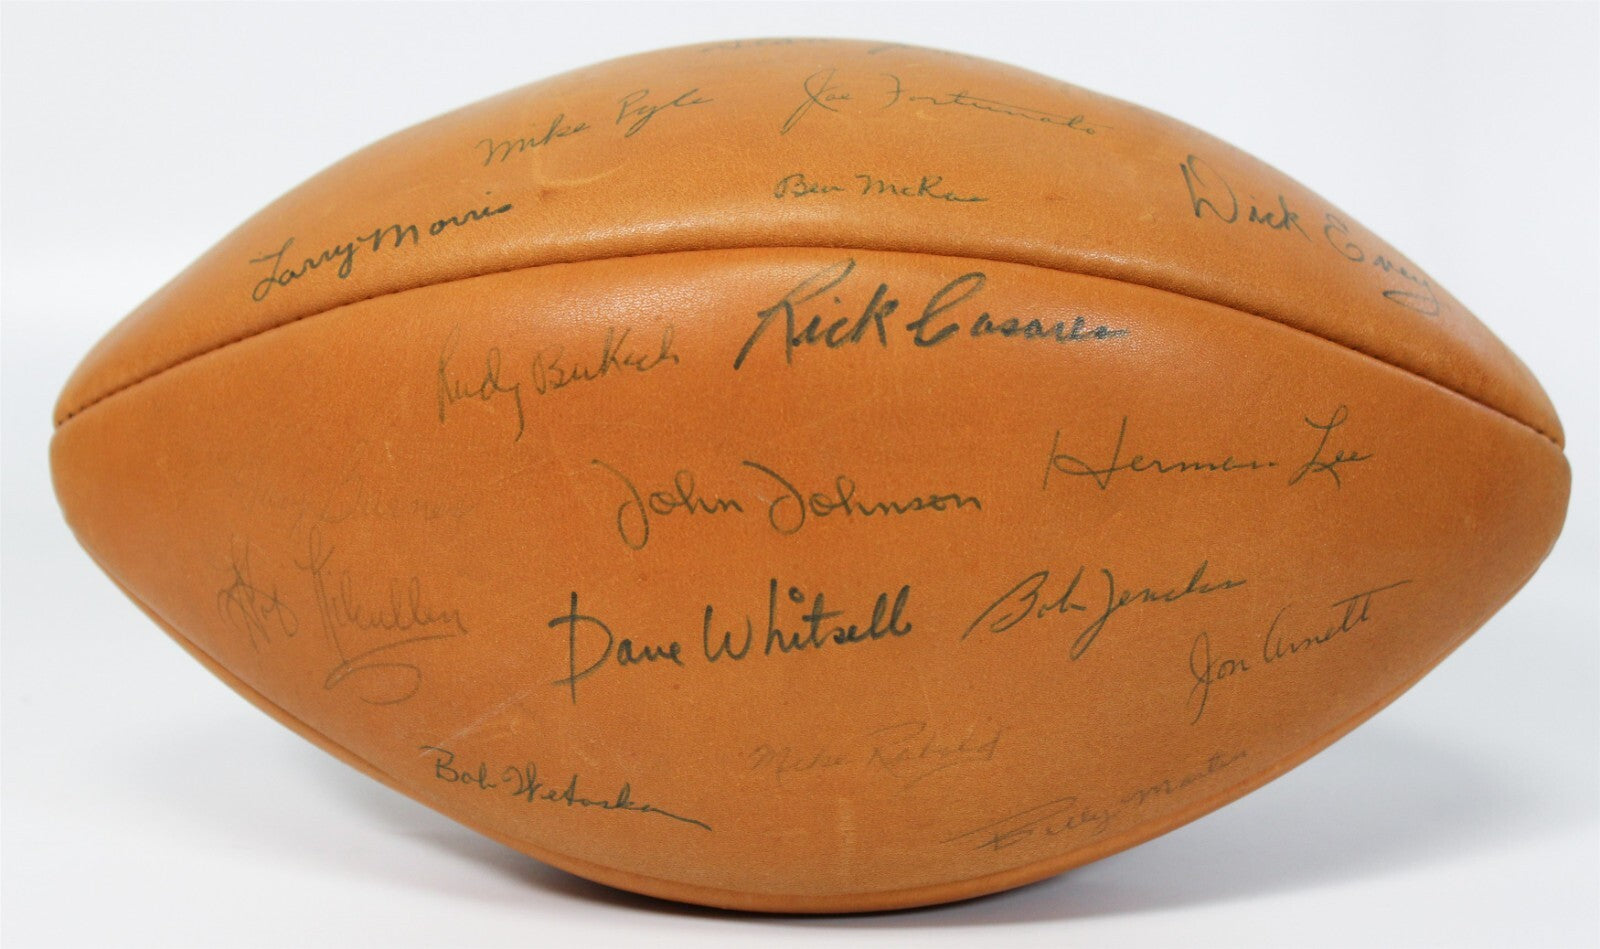 Mike Pyle
Joe Fortunato
Larry Morris
Ben McRae
Dick Evey
Rudy Bukich
Rick Casares
John Johnson
Herman Lee
Kilcullen
Dave Whitsell
Bob Jencks
Jon Arnett
Bob Wetoska
Mike Rabold
Billy Martin